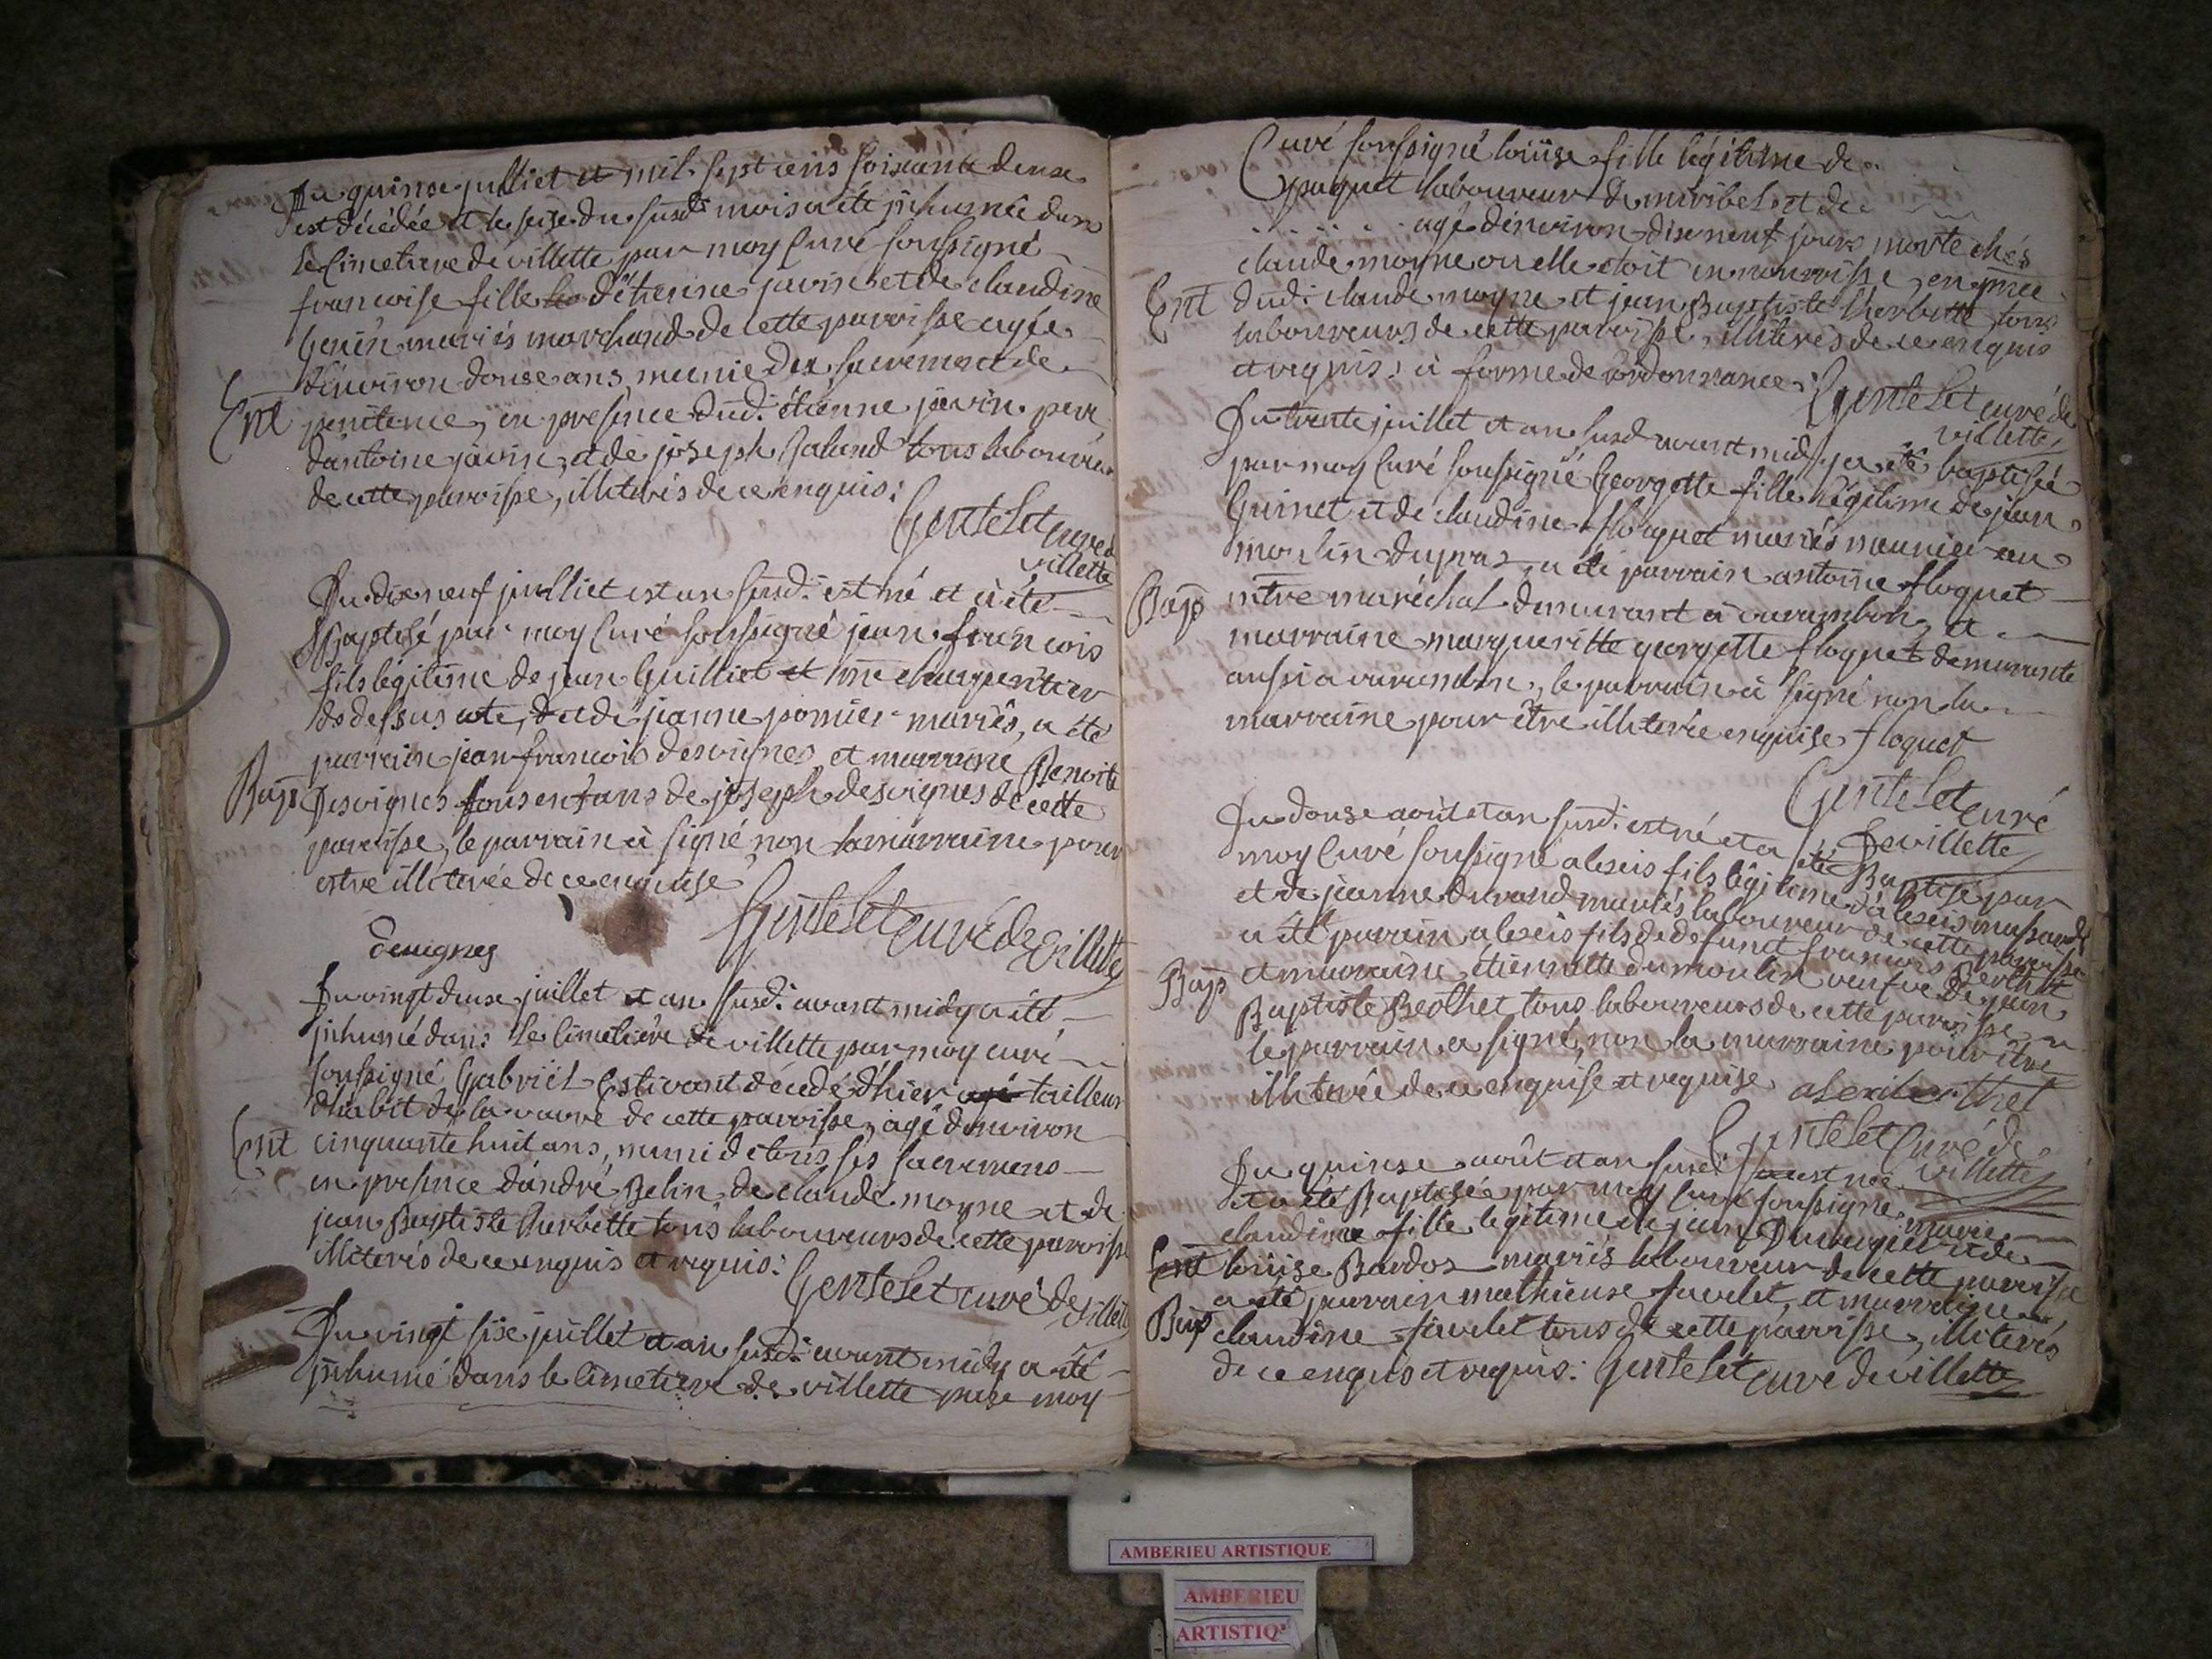 Du quinze julliet et mil sept cens soixante deuse
est décédée et le seize du susd: mois a été jnhumée dans
le Cimetiere de villette par moy Curé soussigné
francoise fille d'étienne javin et de claudine
Genin mariés marchand de cette paroisse agée
d'environ douse ans munie des sacrement de
Ent penitence, en presence dud: étienne javin pere
d'antoine javin, et de joseph Jaland tous laboureur
de cette paroisse, illiterés de ce enquis:
Gentelet curé de
villette
Du dix neuf julliet et an susd: est né et à été
Baptisé par moy Curé soussigné jean francois
fils légitime de jean Guilliet et me charpentier
et de jeanne pomier mariés, a été
parrain jean francois desvignes et marraine Benoite
Bap Desvignes tous enfans de joseph desvignes de cette
paroisse, le parrain à signé non la marraine pour
estre illiterée de ce enquise
Gentelet curé de villette
devignes
Du vingt deuse juillet et an susd: avant midy a été
jnhumé dans le cimetiére de villette par moy curé
soussigné Gabriël Estivant décédé d'hier agé tailleur
d'habit de la vavre de cette paroisse, agé d'environ
Ent cinquante huit ans, muni de tous ses sacremens
en presence d'andré Belin de claude moyne et de
jean Baptiste Cherbette tous laboureurs de cette paroisse
illiterés de ce enquis et requis:
Gentelet curé de villette
Du vingt sixe juillet et an susd: avant midy a été
jnhumé dans le cimetiere de villette par moy
Curé soussigné loüise fille légitime de
paquet laboureur de miribel et de
. . . . . . agé d'environ dix neuf jours morte chés
claude moyne ou elle etoit en nourrisse, en pnce
Ent dud: claude moyne et jean Baptiste Cherbette tous
laboureurs de cette paroisse, illiterés de ce enquis
et requis: à forme de l'ordonnance:
Gentelet curé de
villette
Du trente juillet et an susd avant midy a été baptisée
par moy Curé soussigné Georgette fille légitime de jean
Guinet et de claudine floquet mariés meunier au
moulin dupras, a été parrain antoine floquet
Bap mtre maréchal demeurant à varambon, et
marraine margueritte georgette floquet demeurante
aussi a varambon, le parrain à signé non la
marraine pour être illiterée enquise floquet
Gentelet curé
de villette
Du douse août et an susd: est né et a été Baptisé par
moy Curé soussigné alexis fils légitime d'alexis
et de jeanne durand mariés laboureur de cette paroisse
a été parrain alexis fils de defunct francois Berthet
Bap et marraine étiennette dumoulin veufve de jean
Baptiste Berthet tous laboureurs de cette paroisse
le parrain a signé, non la marraine pour être
illiterée de ce enquise et requise alexis berthet
Gentelet Curé de
villette
Du quinse août et an susd: est née
et a été Baptisée par moy Curé soussigné marie
claudine fille légitime de jean et de
Ent loüise Bardos mariés laboureur de cette paroisse
a été parrain mathieuse favelet, et marraine
Bap claudine favelet tous de cette paroisse, illiterés
de ce enquis et requis: Gentelet curé de villette
AMBERIEU ARTISTIQUE
AMBERIEU
ARTISTIQ